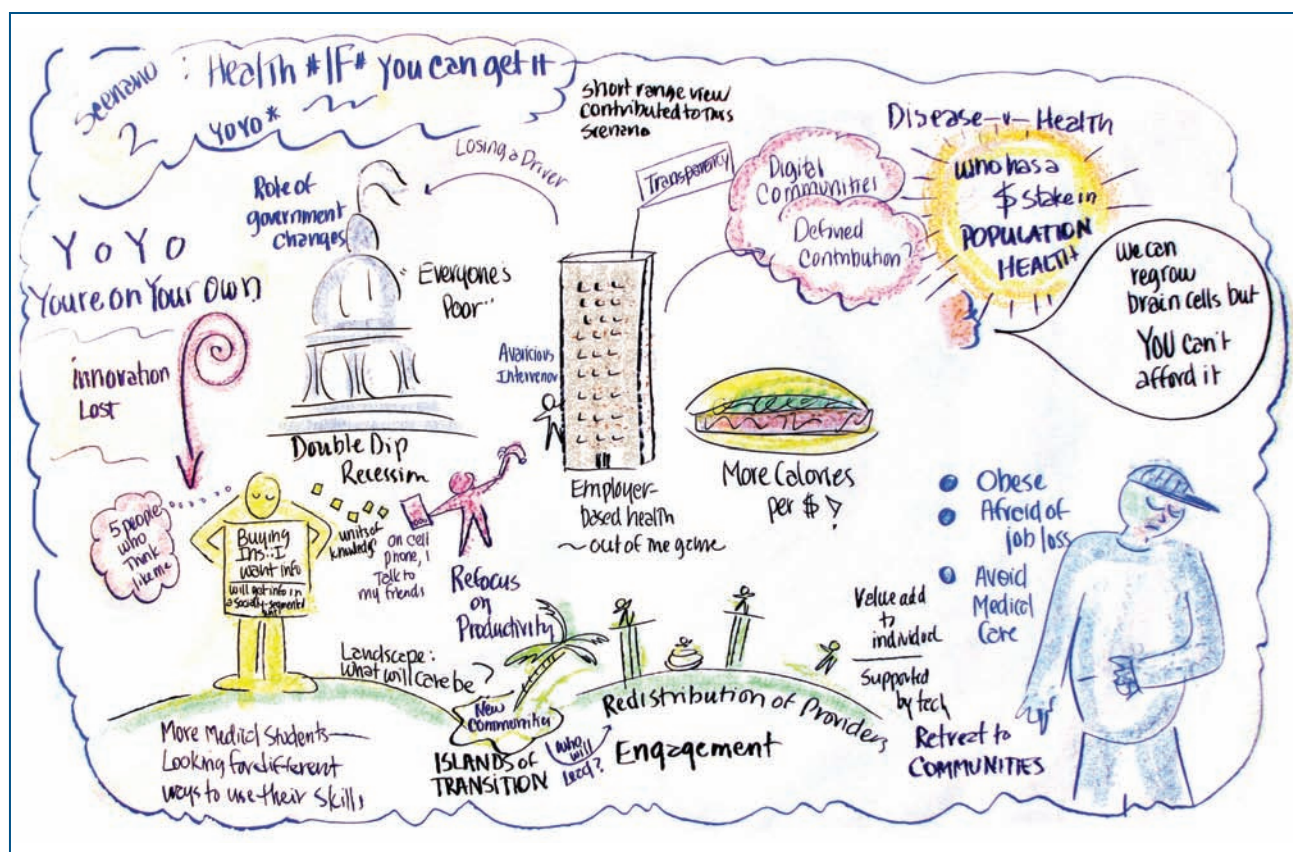 Scenario 2
: Health *IF* You can get it
YOYO*
Short range view
contributed to this
Scenario
Disease-v-Health
Losing a Driver
Transparency
Digital
Communities
Defined
Contribution?
Who has a
$ Stake in
POPULATION
HEALTH
Role of
government
changes
YoYo
Youre on Your Own
"Everyone's
Poor"
We can
regrow
brain cells but
YOU can't
afford it
innovation
Lost
Avaricious
Intervenor
Double Dip
Recession
Employer-
Based health
~ out of the game
More Calories
per $ ?
• Obese
• Afraid of
job loss
• Avoid
Medical
Care
5 people
who
Think
like me
Buying
Ins..I
want info
will get info in
a socially-segmented
units of
knowledge
on cell
phone, I
Talk to
my friends
Refocus
on
Productivity
Landscape:
what will care be?
New
Communities
ISLANDS of
TRANSITION
who
will
lead?
Redistribution of Providers
Engagement
Value add
to
individual
Supported
by tech
Retreat to
COMMUNITIES
More Medical Students—
Looking for different
ways to use their skills